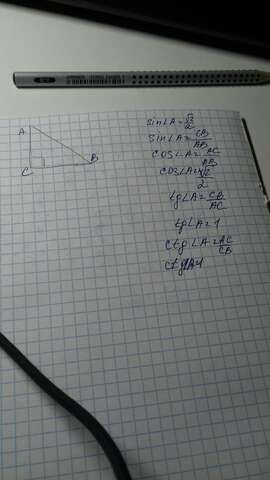 A
B
C
sin∠A=√2/2
sin∠A=CB/AB
cos∠A=AC/AB
cos∠A=√2/2
tg∠A=CB/AC
tg∠A=1
ctg∠A=AC/CB
ctg∠A=1